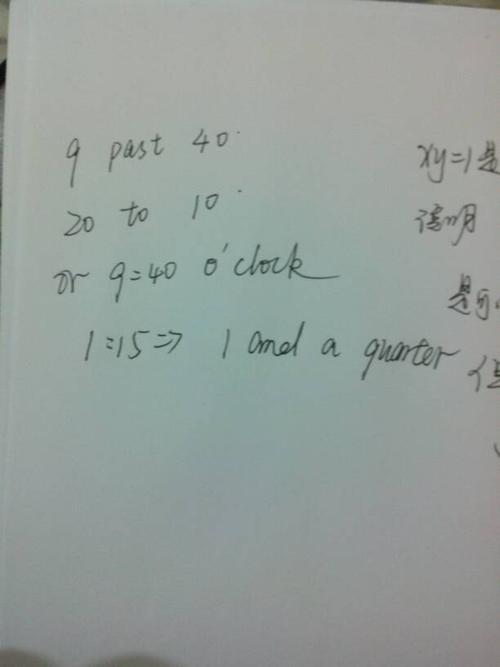 9 past 40.
20 to 10.
or 9:40 o'clock
1:15 => 1 and a quarter
xy=1是
请明
是